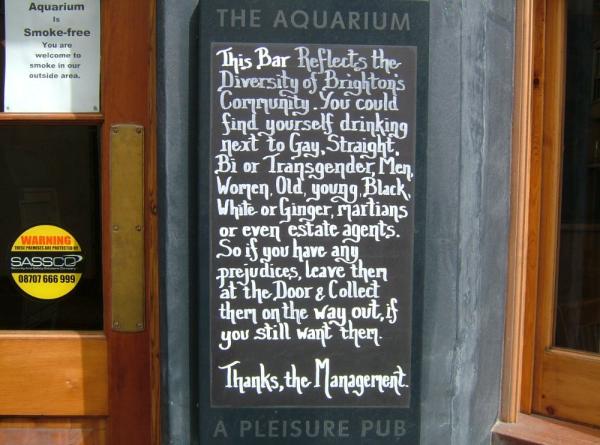 Aquarium
Is
Smoke-free
You are
welcome to
smoke in our
outside area.
WARNING
THESE PREMISES ARE PROTECTED BY
SASSCO
08707 666 999
THE AQUARIUM
This Bar Reflects the
Diversity of Brighton's
Community. You could
find yourself drinking
next to Gay, Straight,
Bi or Transgender, Men,
Women, Old, young, Black,
White or Ginger, martians
or even estate agents.
So if you have any
prejudices, leave them
at the Door & Collect
them on the way out, if
you still want them.
Thanks, the Management.
A PLEISURE PUB